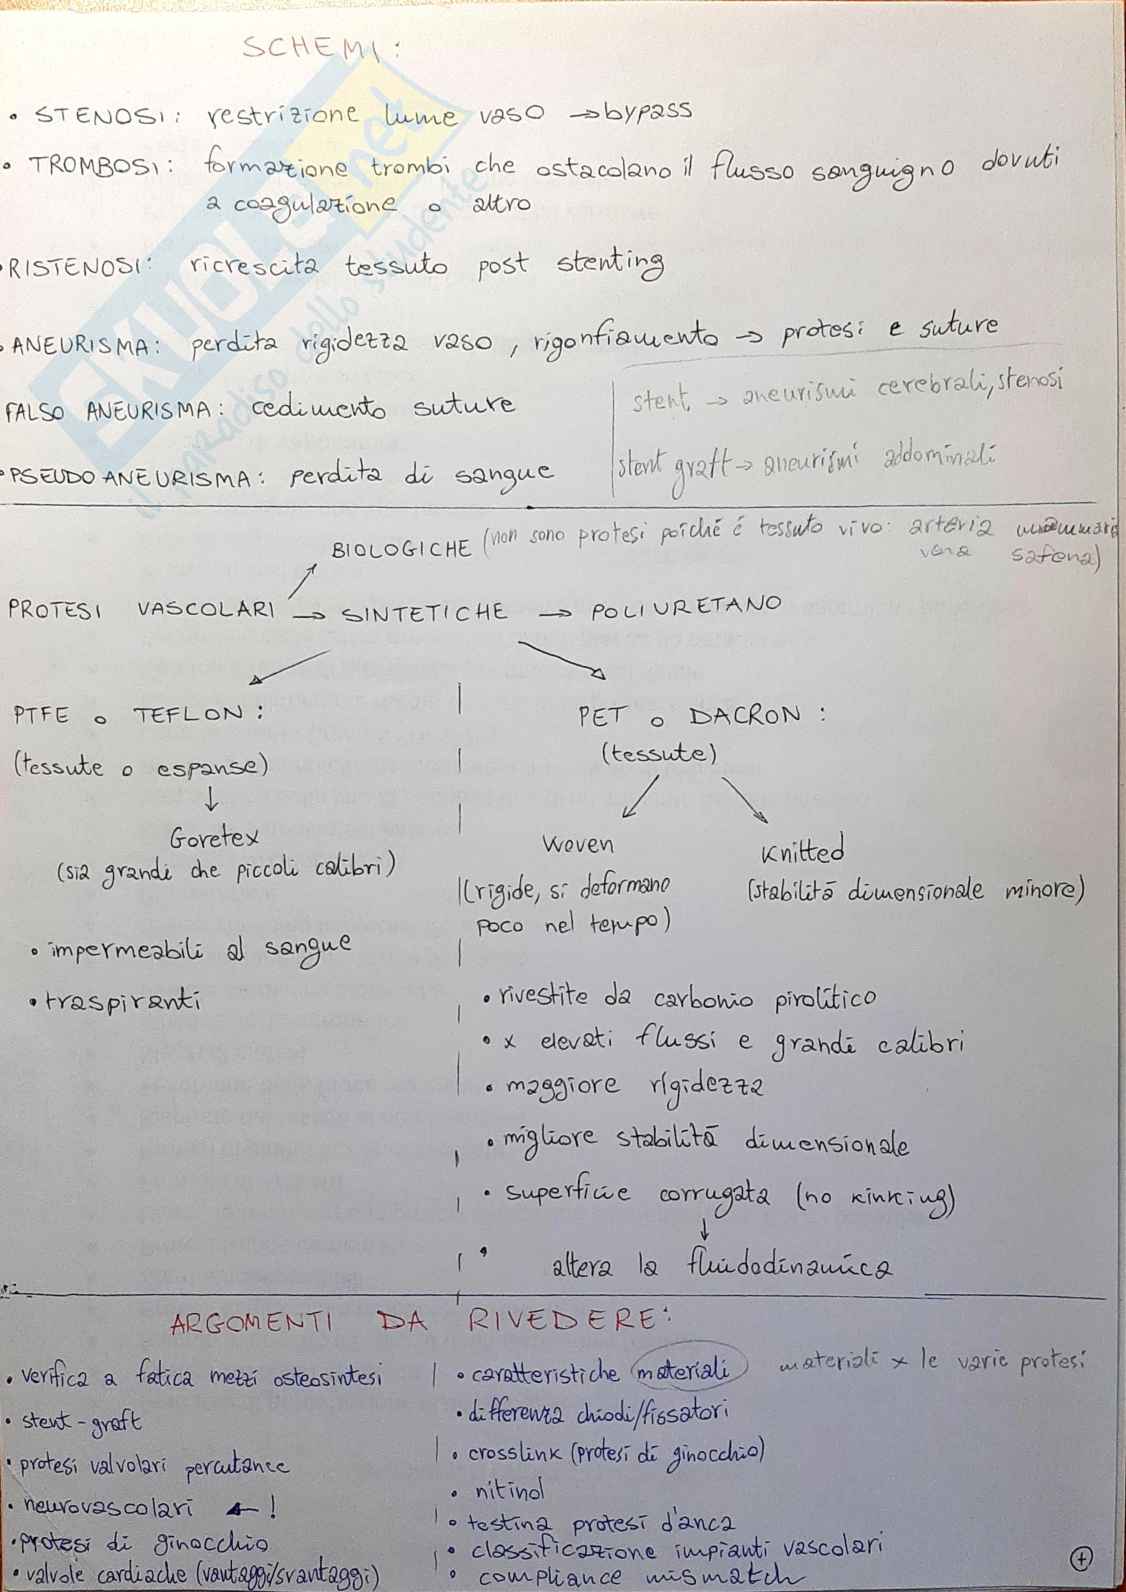 SCHEMI:
• STENOSI: restrizione lume vaso → bypass
• TROMBOSI: formazione trombi che ostacolano il flusso sanguigno dovuti
a coagulazione o altro
• RISTENOSI: ricrescita tessuto post stenting
• ANEURISMA: perdita rigidezza vaso, rigonfiamento → protesi e suture
FALSO ANEURISMA: cedimento suture
stent → aneurismi cerebrali, stenosi
• PSEUDO ANEURISMA: perdita di sangue
stent graft → aneurismi addominali
SKUOLA.net
il paradiso dello studente
BIOLOGICHE (non sono protesi poiché é tessuto vivo: arteria mammaria
vena safena)
PROTESI VASCOLARI → SINTETICHE → POLIURETANO
PTFE o TEFLON:
(tessute o espanse)
↓
Goretex
(sia grandi che piccoli calibri)
• impermeabili al sangue
• traspiranti
PET o DACRON:
(tessute)
Woven
(rigide, si deformano
poco nel tempo)
Knitted
(stabilitá dimensionale minore)
• rivestite da carbonio pirolitico
• x elevati flussi e grandi calibri
• maggiore rigidezza
• migliore stabilitá dimensionale
• superficie corrugata (no kinking)
↓
• altera la fluidodinamica
ARGOMENTI DA RIVEDERE:
• verifica a fatica mezzi osteosintesi
• stent-graft
• protesi valvolari percutanee
• neurovascolari ← !
• protesi di ginocchio
• valvole cardiache (vantaggi/svantaggi)
• caratteristiche materiali materiali x le varie protesi
• differenza chiodi/fissatori
• crosslink (protesi di ginocchio)
• nitinol
• testina protesi d'anca
• classificazione impianti vascolari
• compliance mismatch
+